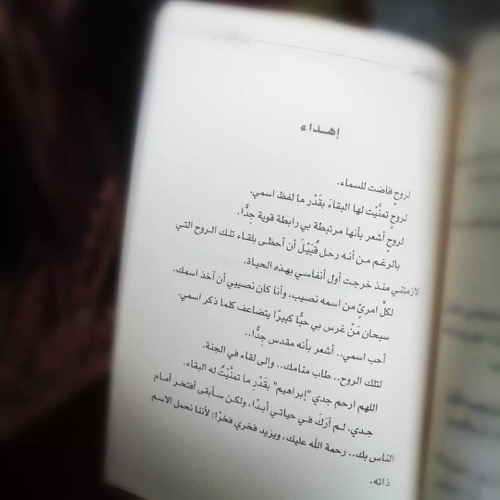 إهداء
لروحٍ فاضت للسماء.
لروحٍ تمنَّيْت لها البقاءَ بقَدْر ما لفظ اسمي.
لروحٍ أشعر بأنها مرتبطة بي رابطة قوية جدًّا.
بالرغم من أنه رحل قُبَيْلَ أن أحظى بلقاء تلك الروح التي
لازمتني منذ خرجت أول أنفاسي بهذه الحياة.
لكلِّ امرئٍ من اسمه نصيب، وأنا كان نصيبي أن آخذ اسمك.
سبحان مَنْ غرس بي حبًّا كبيرًا يتضاعف كلما ذكر اسمي.
أحب اسمي.. أشعر بأنه مقدس جدًّا..
لتلك الروح.. طاب منامك.. وإلى لقاء في الجنة.
اللهم ارحم جدي "إبراهيم" بقَدْرِ ما تمنَّيْتُ له البقاء.
جدي، لم أرَكَ في حياتي أبدًا، ولكن سأبقى أفتخر أمام
الناس بك.. رحمة الله عليك، ويزيد فخري فخرًا؛ لأننا نحمل الاسم
ذاته.